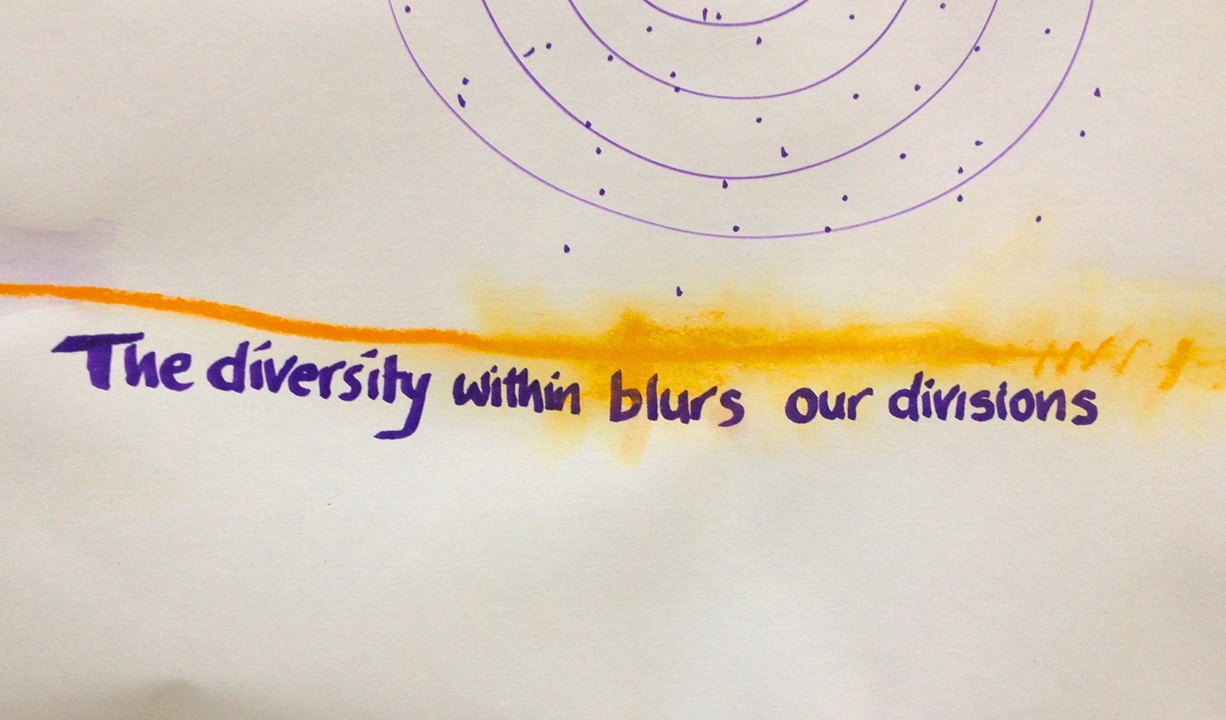 The diversity within blurs our divisions